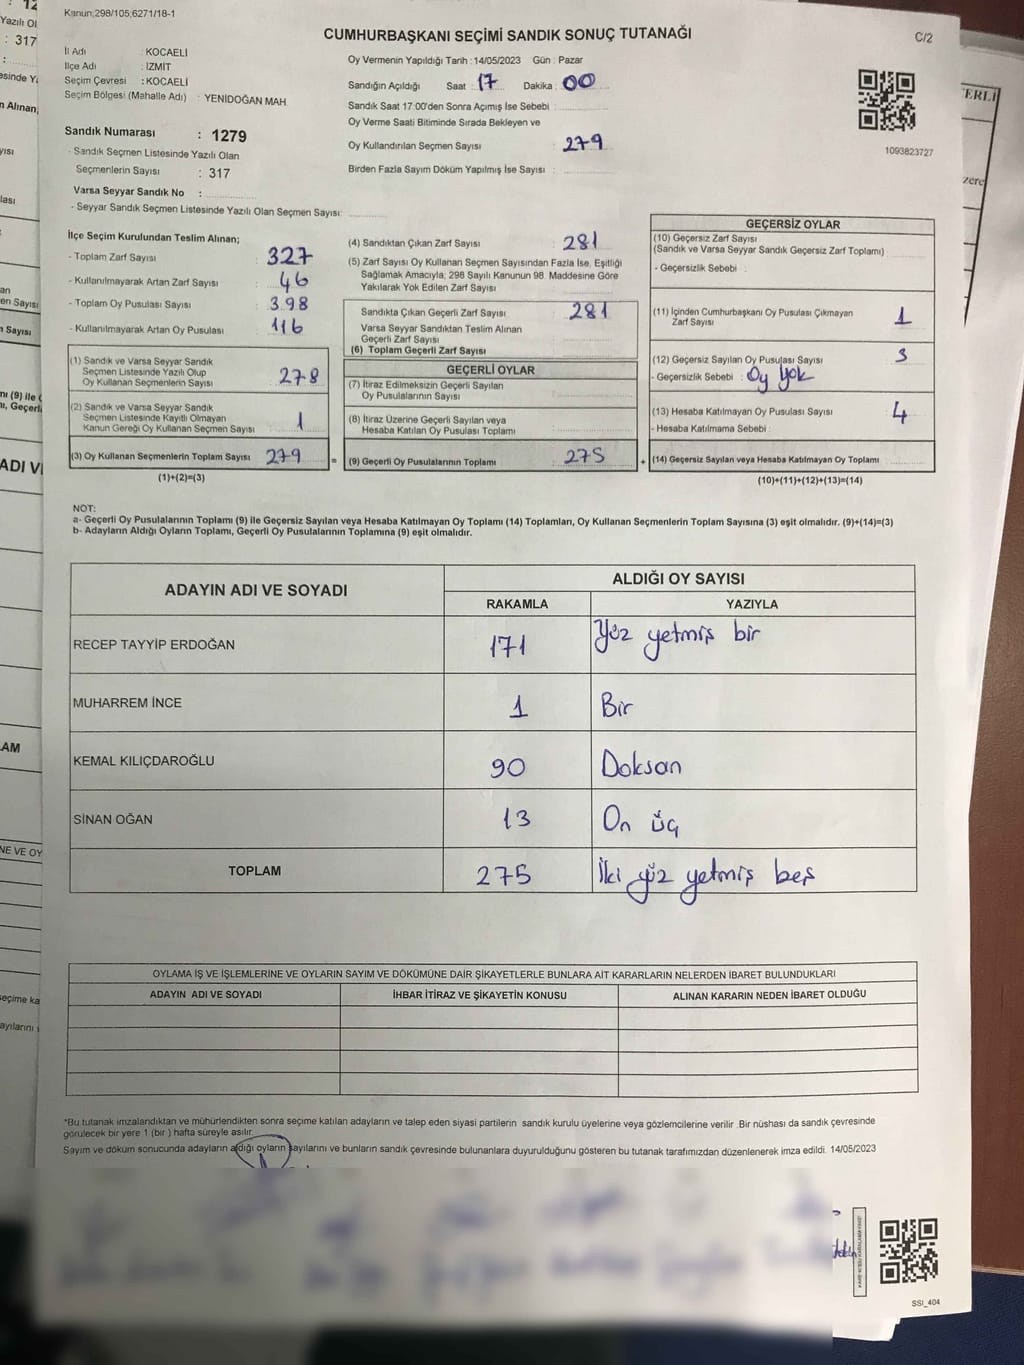 Kanun;298/105;6271/18-1
CUMHURBAŞKANI SEÇİMİ SANDIK SONUÇ TUTANAĞI
C/2
İl Adı : KOCAELİ
İlçe Adı : İZMİT
Seçim Çevresi : KOCAELİ
Seçim Bölgesi (Mahalle Adı) : YENİDOĞAN MAH.
Sandık Numarası : 1279
- Sandık Seçmen Listesinde Yazılı Olan
Seçmenlerin Sayısı : 317
Varsa Seyyar Sandık No :
- Seyyar Sandık Seçmen Listesinde Yazılı Olan Seçmen Sayısı:
Oy Vermenin Yapıldığı Tarih : 14/05/2023 Gün : Pazar
Sandığın Açıldığı Saat : 17 Dakika : 00
Sandık Saat 17:00'den Sonra Açımış İse Sebebi :
Oy Verme Saati Bitiminde Sırada Bekleyen ve
Oy Kullandırılan Seçmen Sayısı : 279
Birden Fazla Sayım Döküm Yapılmış İse Sayısı :
1093823727
İlçe Seçim Kurulundan Teslim Alınan;
- Toplam Zarf Sayısı : 327
- Kullanılmayarak Artan Zarf Sayısı : 46
- Toplam Oy Pusulası Sayısı : 398
- Kullanılmayarak Artan Oy Pusulası : 116
(1) Sandık ve Varsa Seyyar Sandık
Seçmen Listesinde Yazılı Olup
Oy Kullanan Seçmenlerin Sayısı : 278
(2) Sandık ve Varsa Seyyar Sandık
Seçmen Listesinde Kayıtlı Olmayan
Kanun Gereği Oy Kullanan Seçmen Sayısı : 1
(3) Oy Kullanan Seçmenlerin Toplam Sayısı : 279 =
(1)+(2)=(3)
(4) Sandıktan Çıkan Zarf Sayısı : 281
(5) Zarf Sayısı Oy Kullanan Seçmen Sayısından Fazla İse, Eşitliği
Sağlamak Amacıyla; 298 Sayılı Kanunun 98. Maddesine Göre
Yakılarak Yok Edilen Zarf Sayısı :
Sandıkta Çıkan Geçerli Zarf Sayısı : 281
Varsa Seyyar Sandıktan Teslim Alınan
Geçerli Zarf Sayısı :
(6) Toplam Geçerli Zarf Sayısı
GEÇERLİ OYLAR
(7) İtiraz Edilmeksizin Geçerli Sayılan
Oy Pusulalarının Sayısı :
(8) İtiraz Üzerine Geçerli Sayılan veya
Hesaba Katılan Oy Pusulası Toplamı :
(9) Geçerli Oy Pusulalarının Toplamı : 275 +
GEÇERSİZ OYLAR
(10) Geçersiz Zarf Sayısı
(Sandık ve Varsa Seyyar Sandık Geçersiz Zarf Toplamı) :
- Geçersizlik Sebebi :
(11) İçinden Cumhurbaşkanı Oy Pusulası Çıkmayan
Zarf Sayısı : 1
(12) Geçersiz Sayılan Oy Pusulası Sayısı : 3
- Geçersizlik Sebebi : Oy yok
(13) Hesaba Katılmayan Oy Pusulası Sayısı : 4
- Hesaba Katılmama Sebebi :
(14) Geçersiz Sayılan veya Hesaba Katılmayan Oy Toplamı :
(10)+(11)+(12)+(13)=(14)
NOT:
a- Geçerli Oy Pusulalarının Toplamı (9) ile Geçersiz Sayılan veya Hesaba Katılmayan Oy Toplamı (14) Toplamları, Oy Kullanan Seçmenlerin Toplam Sayısına (3) eşit olmalıdır. (9)+(14)=(3)
b- Adayların Aldığı Oyların Toplamı, Geçerli Oy Pusulalarının Toplamına (9) eşit olmalıdır.
ADAYIN ADI VE SOYADI
ALDIĞI OY SAYISI
RAKAMLA YAZIYLA
RECEP TAYYİP ERDOĞAN 171 Yüz yetmiş bir
MUHARREM İNCE 1 Bir
KEMAL KILIÇDAROĞLU 90 Doksan
SİNAN OĞAN 13 On üç
TOPLAM 275 İki yüz yetmiş beş
OYLAMA İŞ VE İŞLEMLERİNE VE OYLARIN SAYIM VE DÖKÜMÜNE DAİR ŞİKAYETLERLE BUNLARA AİT KARARLARIN NELERDEN İBARET BULUNDUKLARI
ADAYIN ADI VE SOYADI İHBAR İTİRAZ VE ŞİKAYETİN KONUSU ALINAN KARARIN NEDEN İBARET OLDUĞU
*Bu tutanak imzalandıktan ve mühürlendikten sonra seçime katılan adayların ve talep eden siyasi partilerin sandık kurulu üyelerine veya gözlemcilerine verilir .Bir nüshası da sandık çevresinde
görülecek bir yere 1 (bir) hafta süreyle asılır.
Sayım ve döküm sonucunda adayların aldığı oyların sayılarını ve bunların sandık çevresinde bulunanlara duyurulduğunu gösteren bu tutanak tarafımızdan düzenlenerek imza edildi. 14/05/2023
SSI_404